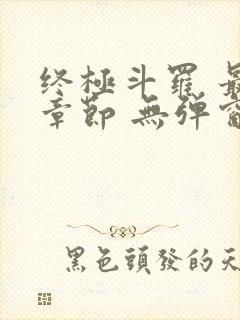 終極斗羅 最
章節 無弹窗
黑色頭發的天